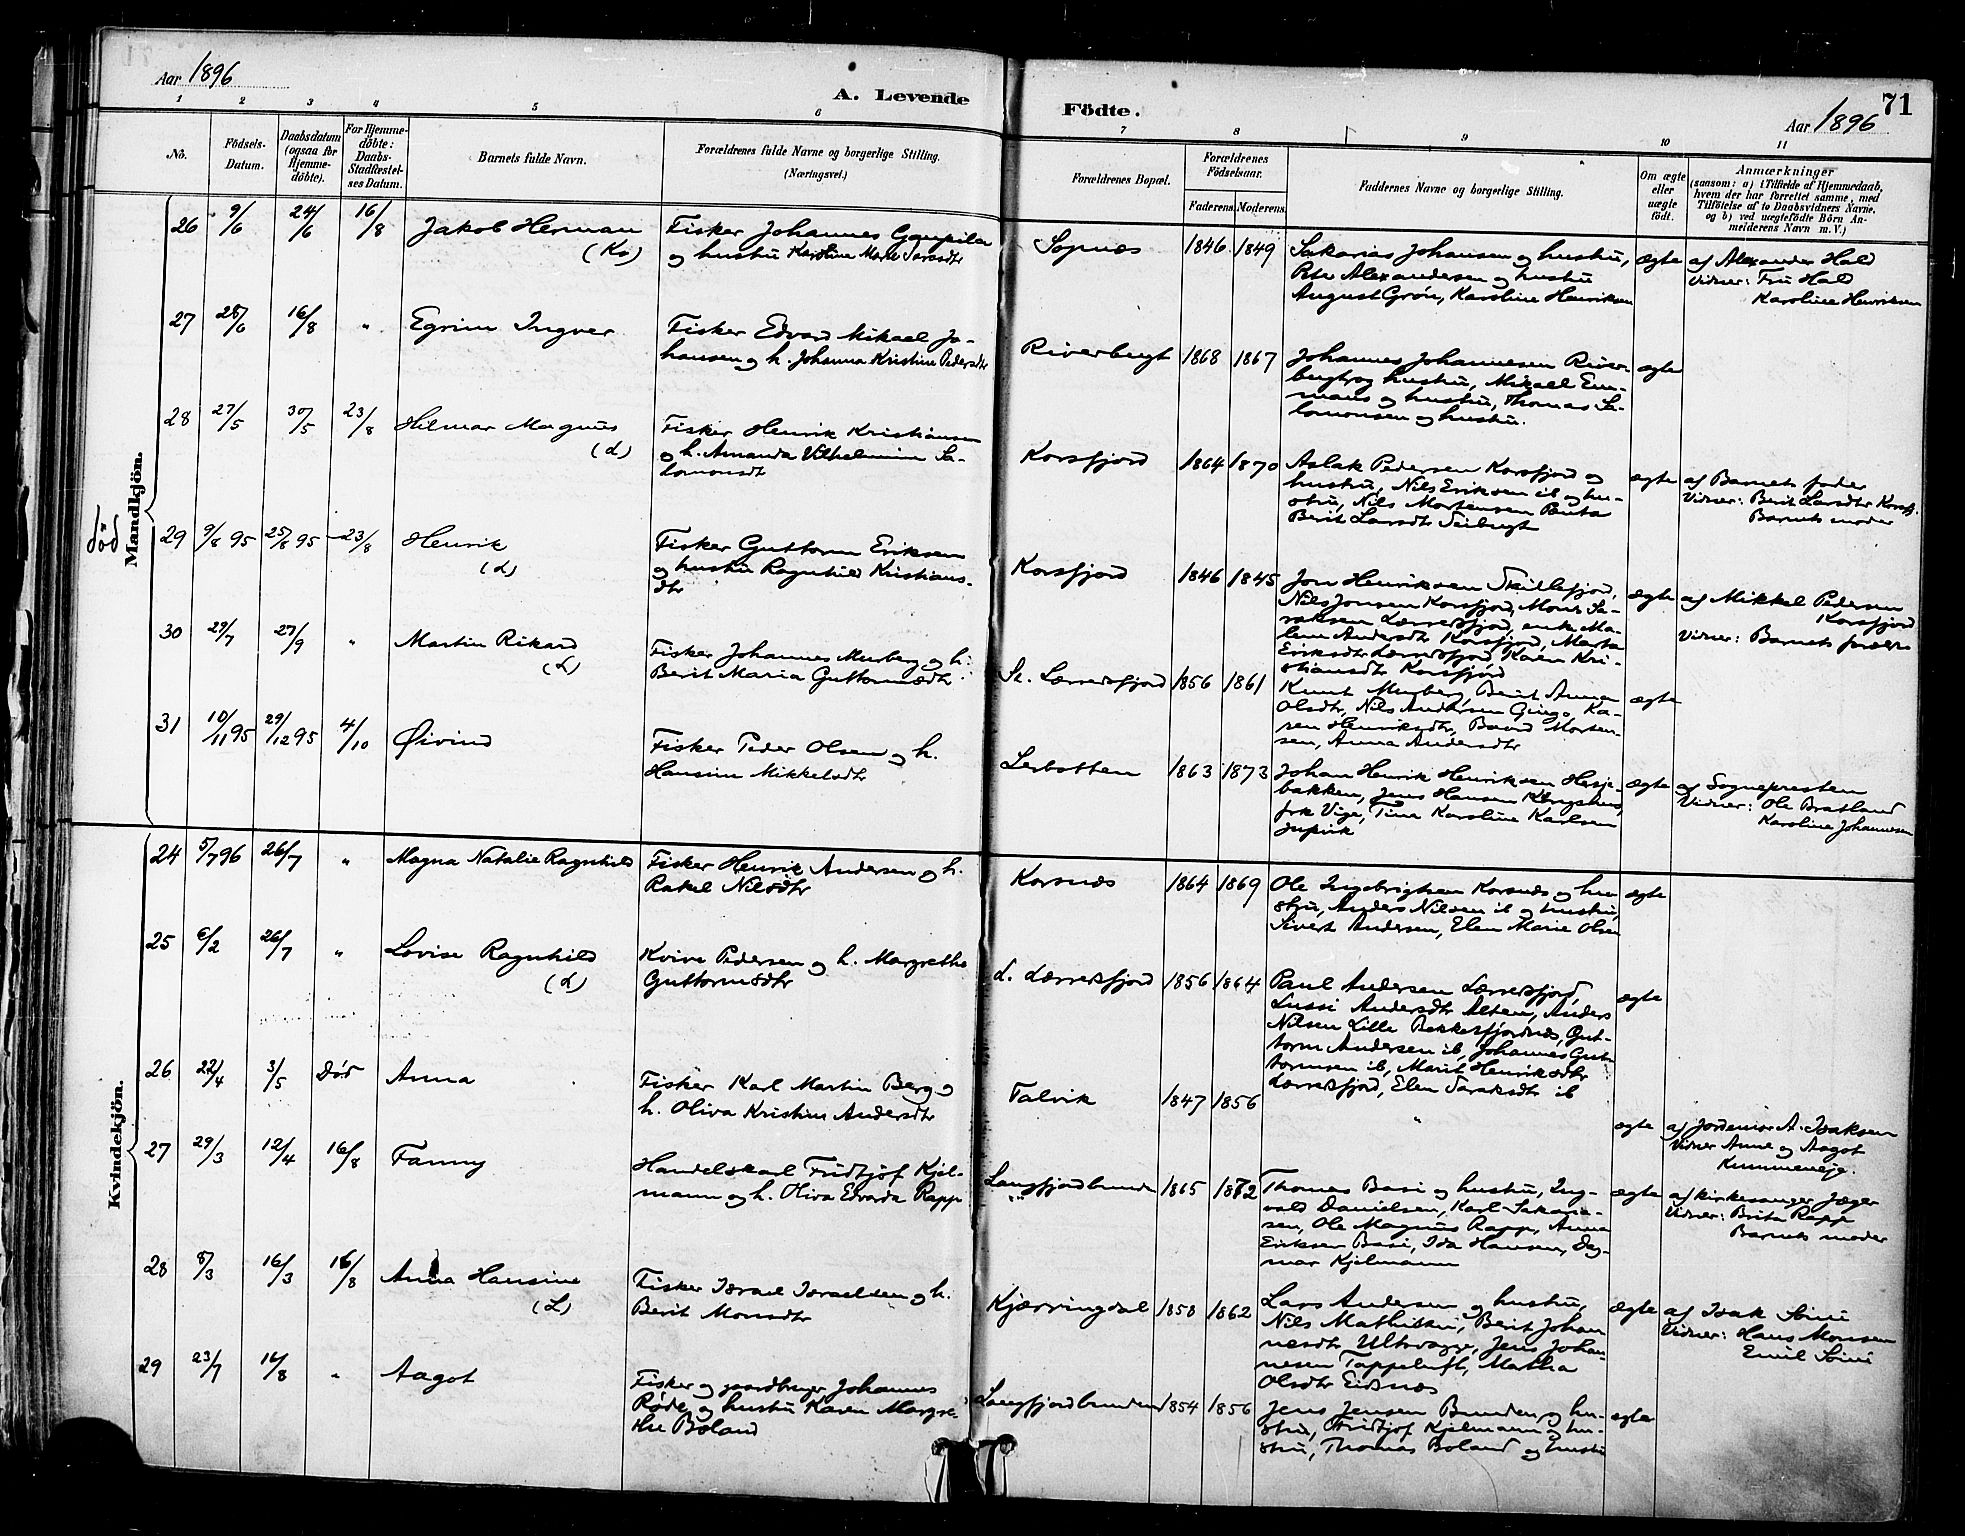 Aar 1896
A. Levende
Födte.
71
Aar 1896
1 2 3 4 5 6 7 8 9 10 11
No.
Födsels-
Datum.
Daabsdatum
(ogsaa for
Hjemme-
döbte).
For Hjemme-
döbte:
Daabs-
Stadfæstel-
ses Datum.
Barnets fulde Navn.
Forældrenes fulde Navne og borgerlige Stilling.
(Næringsvei.)
Forældrenes Bopæl.
Forældrenes
Födselsaar.
Faderens. Moderens.
Faddernes Navne og borgerlige Stilling.
Om ægte
eller
uægte
födt.
Anmærkninger
(saasom: a) i Tilfælde af Hjemmedaab,
hvem der har forrettet samme, med
Tilföielse af to Daabsvidners Navne,
og b) ved uegtefödte Börn An-
melderens Navn m. V.)
Mandkjön.
26 9/6 24/6 16/8 Jakob Herman
(Kv)
Fisker Johannes
og hustru Karoline Marie
Sognæs 1846 1849
Sakarias Johansen og hustru,
Peter Alexandersen og hustru
August Grön, Karoline Henriksen
ægte
af Alexander Hald
Vidner: Fru Hald
Karoline Henriksen
27 28/6 16/8 " Egrim Ingver
Fisker Edvard Mikael Jo-
hansen og h. Johanna Kristine Pedersdtr
Riverbugt 1868 1867
Johannes Johannesen River-
bugt og hustru, Mikael Em-
maus og hustru, Thomas Sa-
lomonsen og hustru.
ægte
28 27/5 30/5 23/8 Hilmar Magnus
(L)
Fisker Henrik Kristiansen
og h. Amanda Vilhelmine Sa-
lomonsdt
Korsfjord 1864 1870
Aslak Pedersen Korsfjord og
hustru, Nils Eriksen ib og hu-
stru, Nils Mortensen
Berit Larsdtr
ægte
af Barnets fader
Vidner: Berit Larsdtr Korsfj.
Barnets moder
död
29 9/8 95 25/8 95 23/8 Henrik
(L)
Fisker Guttorm Eriksen
og hustru Ragnhild Kristians-
dtr
Korsfjord 1846 1845
Jon Henriksen Skillefjord,
Nils Jonsen Korsfjord, Mons Sa-
raksen Lærresfjord, enke Ma-
len Andersdtr Korsfjord, Marta
Eriksdtr Lærresfjord, Karen Kri-
stiansdtr Korsfjord
ægte
af Mikkel Pedersen
Korsfjord
Vidner: Barnets forældre
30 29/7 27/9 " Martin Rikard
(L)
Fisker Johannes Murberg og h.
Berit Maria Guttormsdtr
St. Lærresfjord 1856 1861
Knut Murberg, Berit Anna
Olsdtr, Nils Andersen Ka-
ren Henriksdtr, Baard Morten-
sen, Anna Andersdtr
ægte
31 10/11 95 29/12 95 4/10 Øivind
Fisker Peder Olsen og h.
Hansine Mikkelsdtr
Lerbotten 1863 1873
Johan Henrik Henriksen Hesje-
bakken, Jens Hansen Kongshus,
frk Vige, Tina Karoline Karlsen
ægte
af Sognepresten
Vidner: Ole Bratland
Karoline Johannesen
Kvindekjön.
24 5/7 96 26/7 " Magna Natalie Ragnhild
Fisker Henrik Andersen og h.
Rakel Nilsdtr
Korsnæs 1864 1869
Ole Ingebrigtsen Korsnæs og hu-
stru, Anders Nilsen ib og hustru,
Sivert Andersen, Elen Marie Olsen
ægte
25 6/2 26/7 " Lovise Ragnhild
(L)
Kvive Pedersen og h. Margrethe
Guttormsdtr
L. Lærresfjord 1856 1864
Paul Andersen Lærresfjord,
Lussi Andersdtr Alten, Anders
Nilsen Lille Bekkesfjordnæs, Gut-
torm Andersen ib, Johannes Gut-
tormsen ib, Marit Henriksdtr
Lærresfjord, Elen Saraksdtr ib
ægte
26 22/4 3/5 Död Anna
Fisker Karl Martin Berg og
h. Oliva Kristine Andersdtr
Talvik 1847 1856
"
ægte
af Jordemor A. Isaksen
Vidner Anne og Aagot
Kummeneje.
27 29/3 12/4 16/8 Fanny
Handelskarl Fridtjof Kjel-
mann og h. Oliva Edvarda Rapp
Langfjordbunden 1865 1872
Thomas Basi og hustru, Ing-
vald Danielsen, Karl Sakaria-
sen, Ole Magnus Rapp, Anna
Eriksen Basi, Ida Hansen, Dag-
mar Kjelmann
ægte
af kirkesanger Jæger
Vidner: Brita Rapp
Barnets moder
28 8/3 16/3 16/8 Anna Hansine
(L)
Fisker Israel Israelsen og h.
Berit Monsdtr
Kjærringdal 1858 1862
Lars Andersen og hustru,
Nils Mathisen, Berit Johan-
nesdt Ultsvagge, Jens Johan-
nesen Tappeluft, Martha
Olsdtr Eidsnæs
ægte
af Isak Soini
Vidner: Hans Monsen
Emil Soini
29 23/7 16/8 " Aagot
Fisker og gaardbruger Johannes
Røde og hustru Karen Margre-
the Boland
Langfjordbunden 1854 1856
Jens Jensen Bunden og hu-
stru, Fridtjof Kjelmann og hu-
stru, Thomas Boland og hustru
ægte